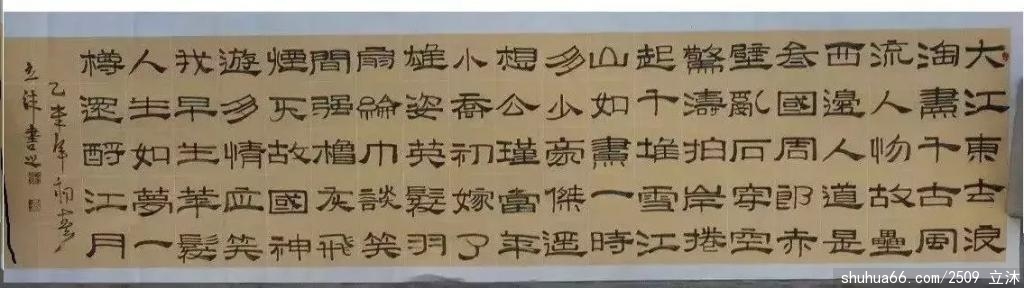 大江東去浪
淘盡千古風
流人物故壘
西邊人道是
叁國周郎赤
壁亂石穿空
驚濤拍岸捲
起千堆雪江
山如畫一時
多少豪傑遥
想公瑾當年
小喬初嫁了
雄姿英發羽
扇綸巾談笑
間强櫓灰飛
煙灭故國神
遊多情应笑
我早生華髮
人生如夢一
樽還酹江月
乙未年初春
立沐書之
shuhua66.com/2509 立沐